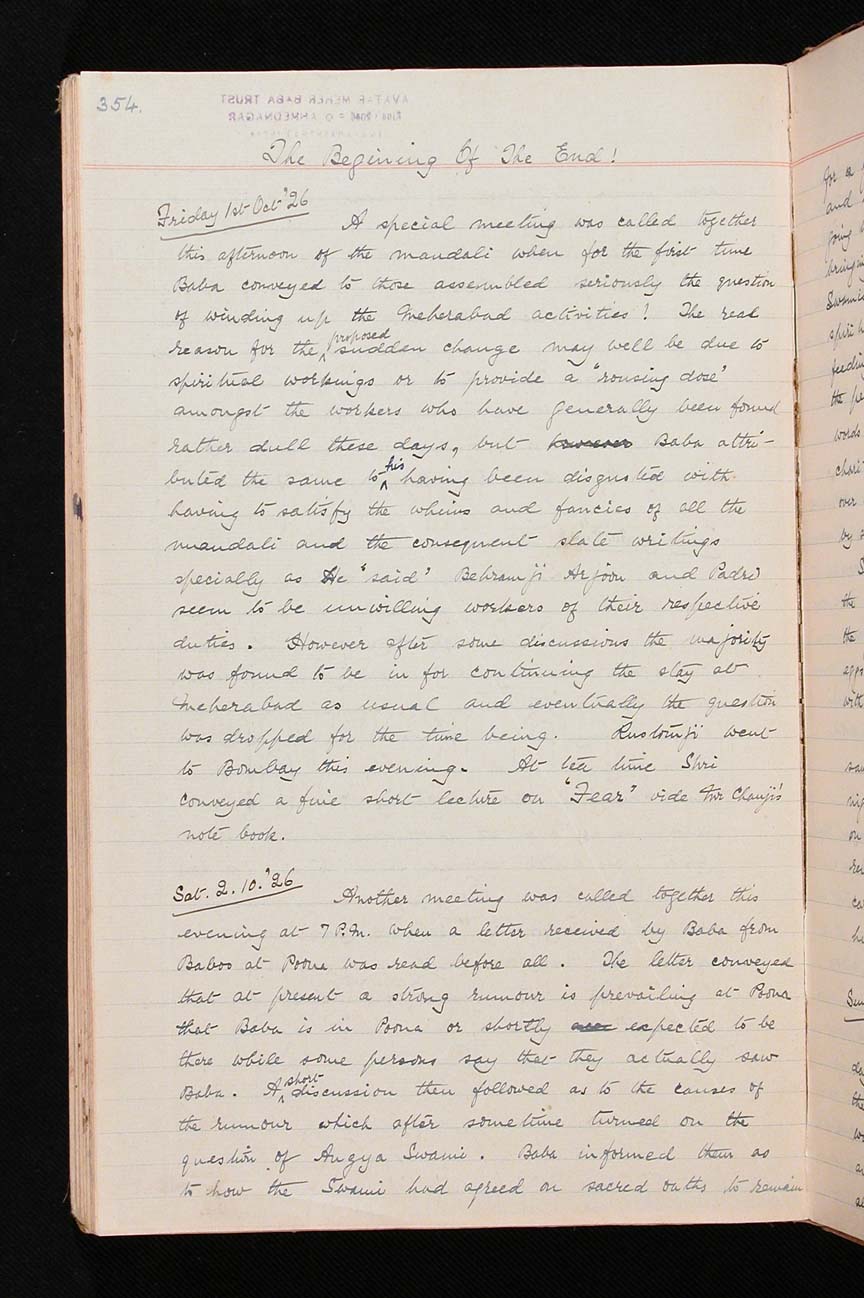 354.
AVATAR MEHER BABA TRUST
AHMEDNAGAR
The Begining Of The End!
Friday 1st Oct '26 A special meeting was called together
this afternoon of the mandali when for the first time
Baba conveyed to those assembled seriously the question
of winding up the Meherabad activities! The real
reason for the proposed sudden change may well be due to
spiritual workings or to provide a "rousing dose"
amongst the workers who have generally been found
rather dull these days, but however Baba attri-
buted the same to his having been disgusted with
having to satisfy the whims and fancies of all the
mandali and the consequent slate writings
specially as He "said" Behramji Arjoon and Padri
seem to be unwilling workers of their respective
duties. However after some discussions the majority
was found to be in for continuing the stay at
Meherabad as usual and eventually the question
was dropped for the time being. Rustomji went
to Bombay this evening. At tea time Shri
conveyed a fine short lecture on "Fear" vide Mr Chanji's
note book.
Sat. 2.10.'26 Another meeting was called together this
evening at 7 P.M. when a letter received by Baba from
Baboo at Poona was read before all. The letter conveyed
that at present a strong rumour is prevailing at Poona
that Baba is in Poona or shortly expected to be
there while some persons say that they actually saw
Baba. A short discussion then followed as to the causes of
the rumour which after sometime turned on the
question of Angya Swami. Baba informed them as
to how the Swami had agreed on sacred oaths to remain